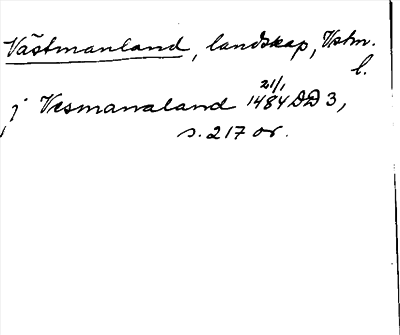 Västmanland, landskap, Vstm.
l.
j Vesmanaland 21/1 1484 DD 3,
s. 217 or.